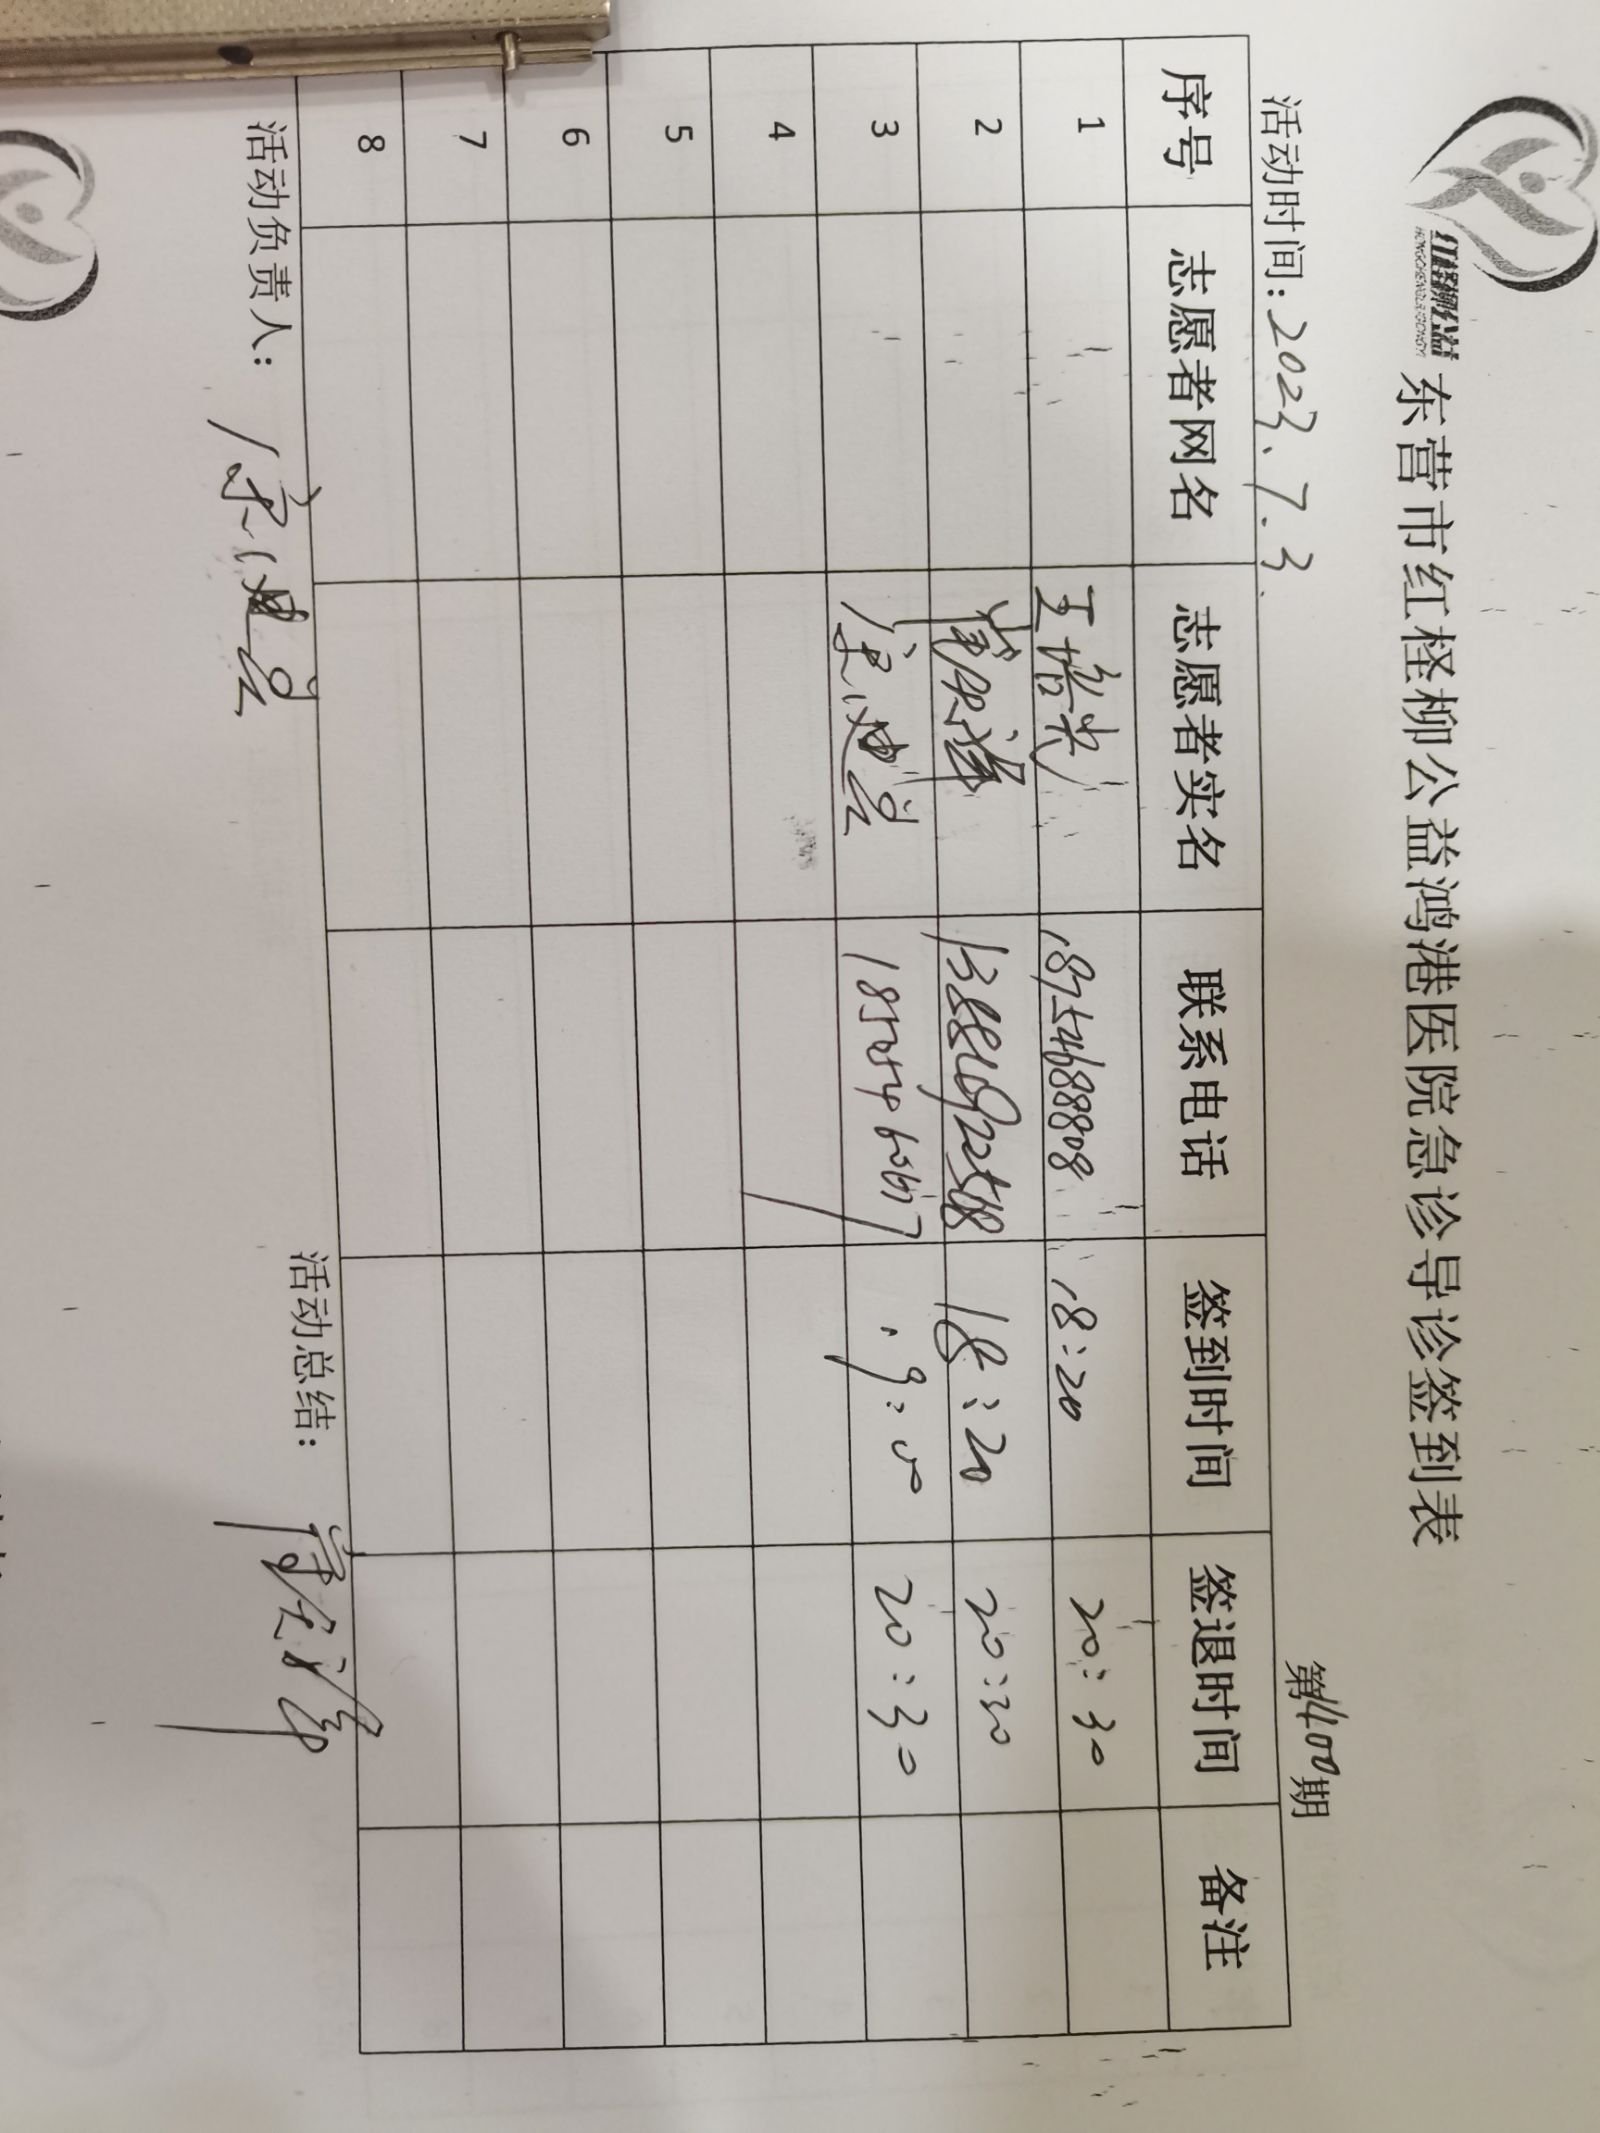 红柽柳公益
东营市红柽柳公益鸿港医院急诊导诊签到表
活动时间：2023.7.3 第1400期
序号 志愿者网名 志愿者实名 联系电话 签到时间 签退时间 备注
1 王培兴 18754688808 18:20 20:30
2 18:20 20:30
3 20:30
4
5
6
7
8
活动负责人： 活动总结：